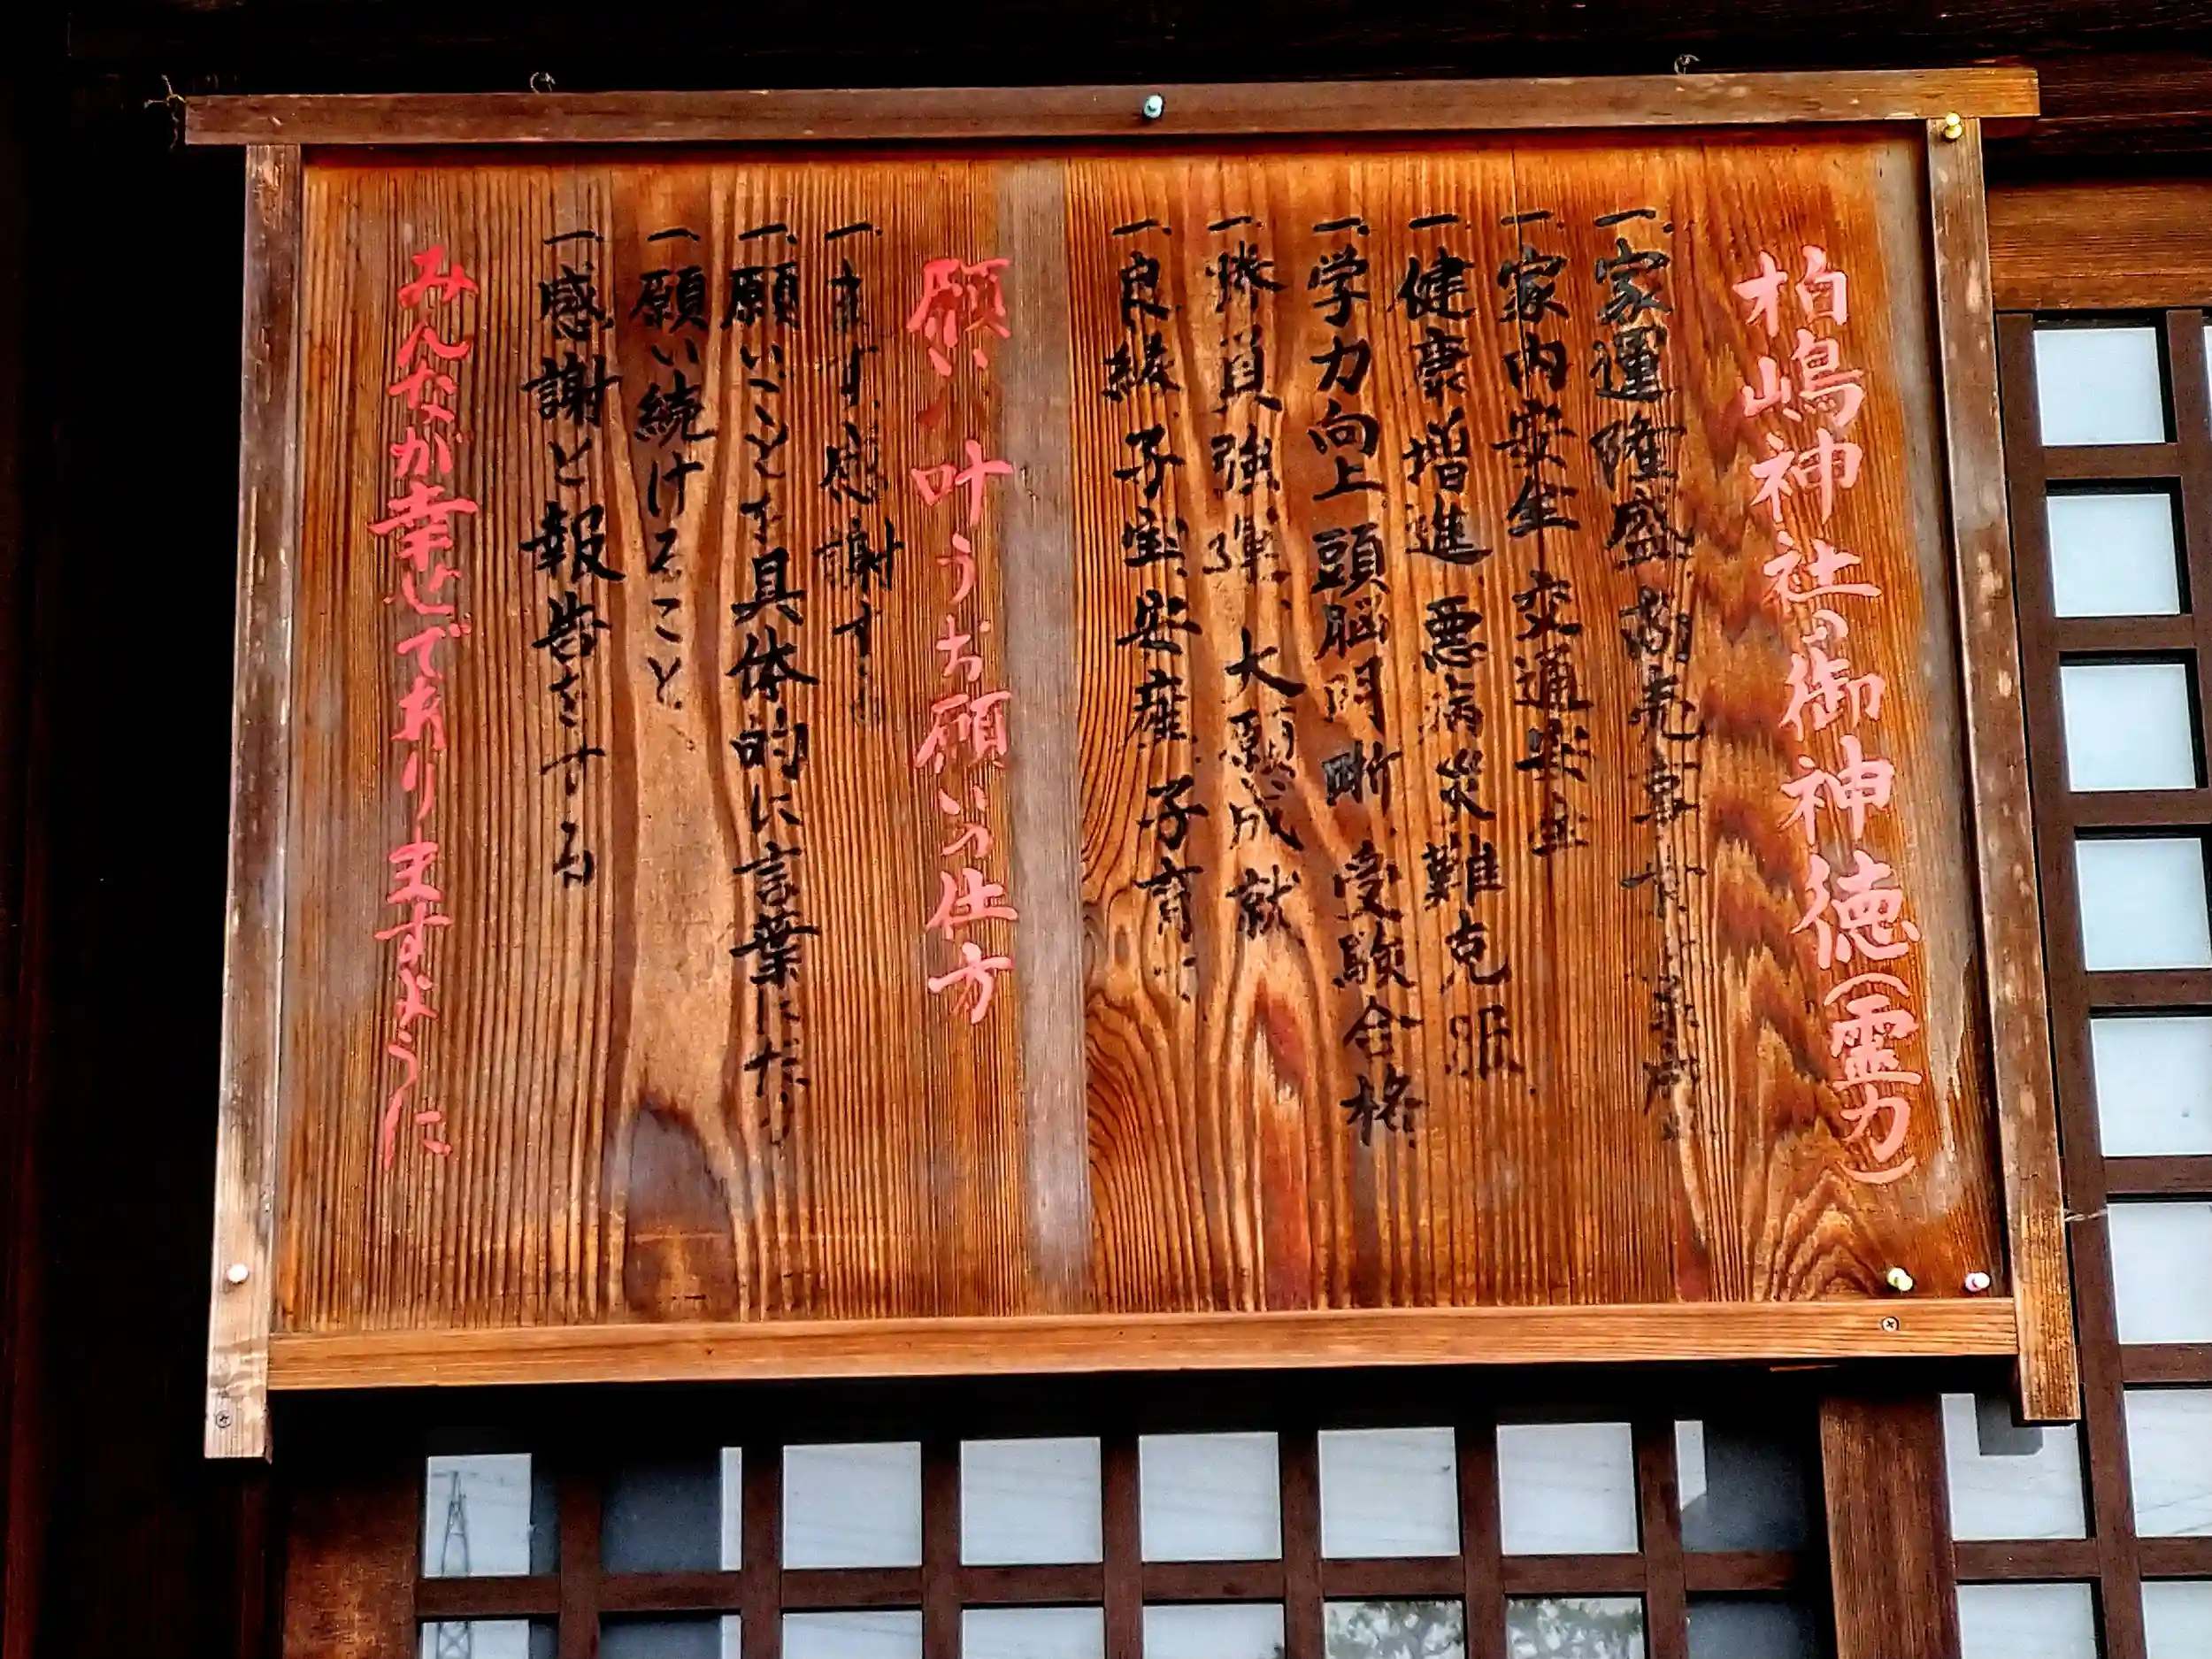 柏嶋神社の御神徳(霊力)
一、家運隆盛 商売
一、家内安全 交通安全
一、健康増進 悪病災難克服
一、学力向上 頭脳明晰 受験合格
一、勝負強運 大願成就
一、良縁 子宝 安産 子育
願いが叶うお願いの仕方
一、まず感謝す
一、願いごとを具体的に言葉にだ
一、願い続けること
一、感謝と報告をする
みんなが幸せでありますように